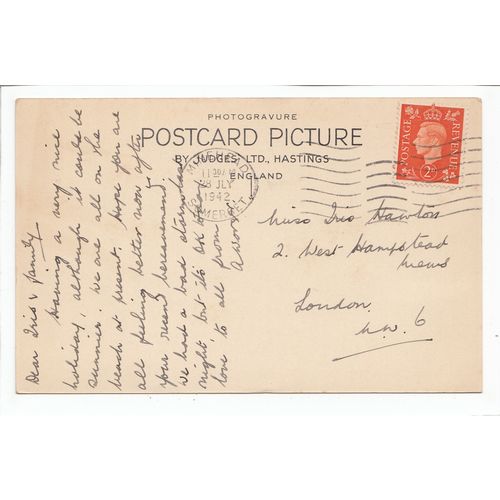 PHOTOGRAVURE
POSTCARD PICTURE
BY JUDGES' LTD., HASTINGS
ENGLAND
POSTAGE
REVENUE
2D
28 JLY
1942
SOMERSET
Miss Iris
2. West Hampstead
Mews
London.
N.W. 6
Dear Iris & family
Having a very nice
holiday, although it could be
sunnier. We are all on the
beach at present. Hope you are
all feeling better now after
your recent bereavement.
We had a bad
night but it's
love to all from